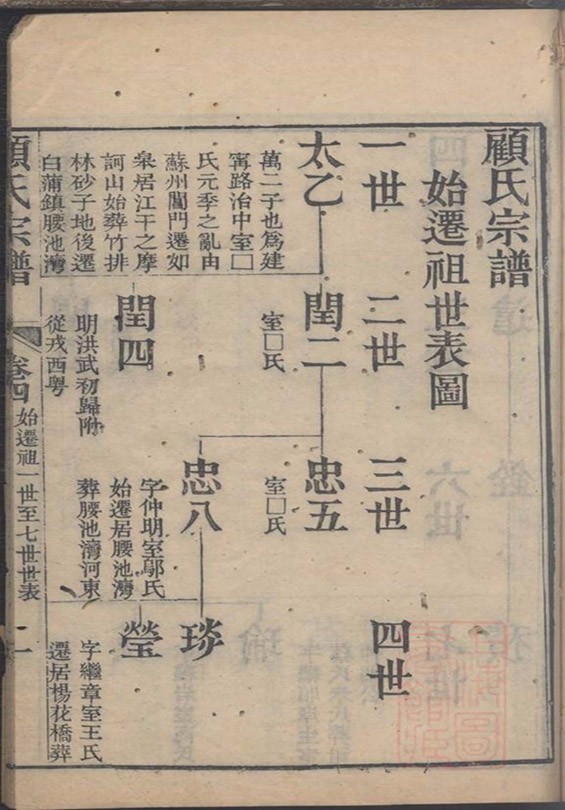 顧氏宗譜
始遷祖世表圖
一世
二世
三世
四世
太乙
閏二
忠五
萬二子也爲建
寗路治中室□
氏元季之亂由
蘇州閶門遷如
皋居江干之摩
訶山始葬竹排
林砂子地後遷
白蒲鎮腰池灣
室□氏
室□氏
忠八
琰
閏四
字仲明室鄔氏
始遷居腰池灣
葬腰池灣河東
瑩
明洪武初歸附
從戎西粵
字繼章室王氏
遷居楊花橋葬
顧氏宗譜
卷四
始遷祖一世至七世世表
二